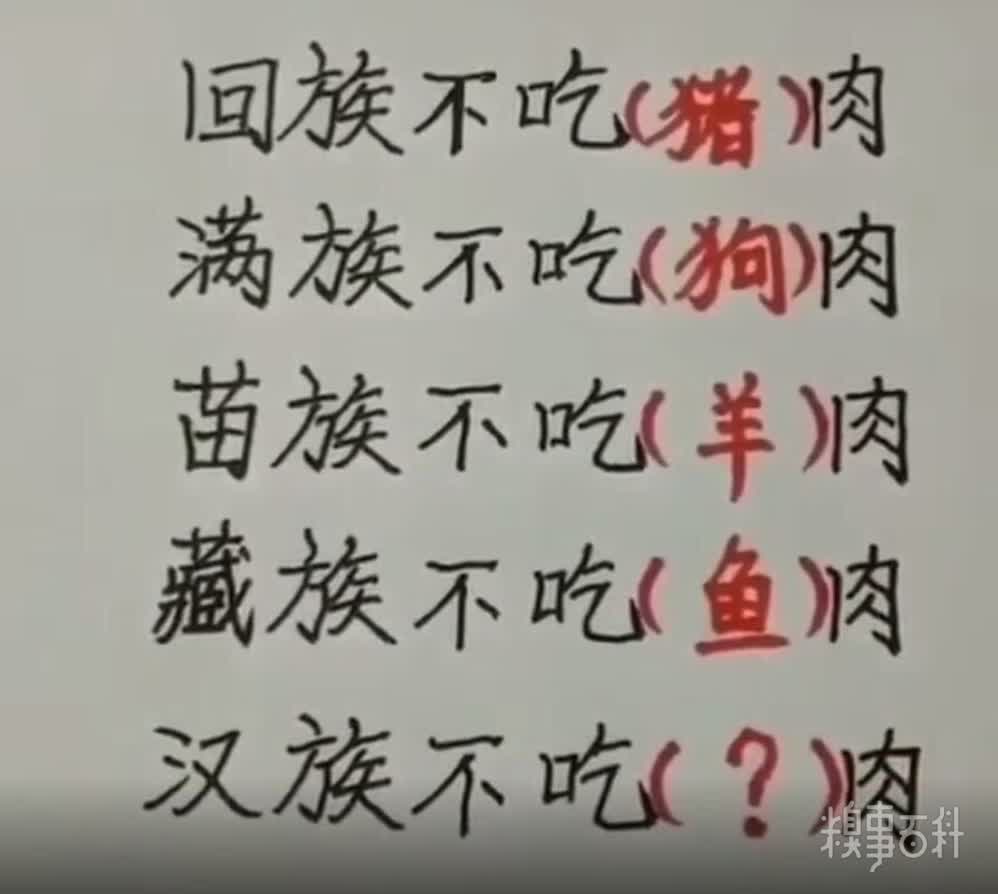 回族不吃(猪)肉
满族不吃(狗)肉
苗族不吃(羊)肉
藏族不吃(鱼)肉
汉族不吃(?)肉
糗事百科